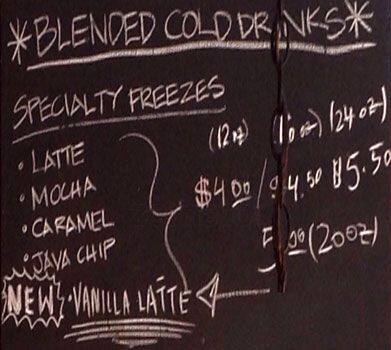 *BLENDED COLD DRINKS*
SPECIALTY FREEZES
(12oz) (24oz)
• LATTE
• MOCHA
$4.00 / $4.50 $5.50
• CARAMEL
• JAVA CHIP
5.00 (20oz)
NEW • VANILLA LATTE